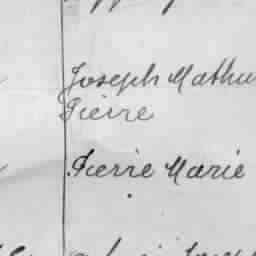 Joseph Mathu
Pierre
Pierre Marie